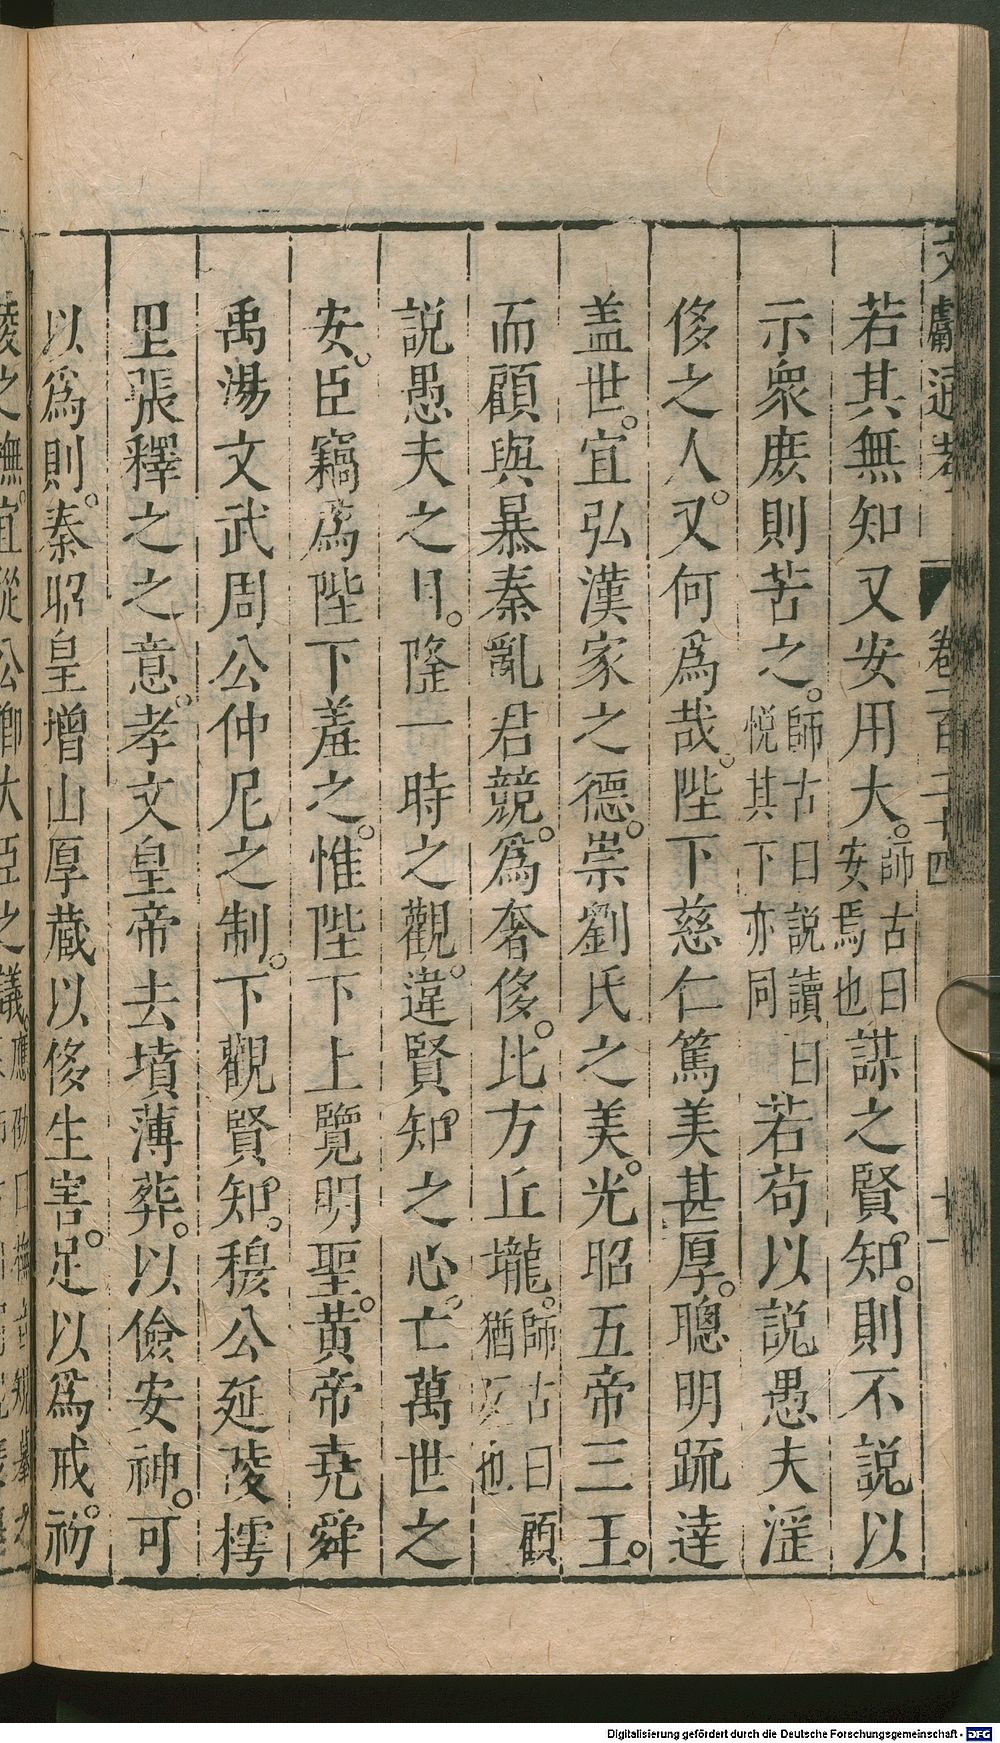 文獻通考 卷一百二十四 十一
若其無知又安用大。師古曰安焉也謀之賢知。則不說。以
示衆庶則苦之。師古曰說讀曰悅其下亦同若苟以說愚夫淫
侈之人。又何爲哉。陛下慈仁篤美甚厚。聰明疏達
盖世。宜弘漢家之德。崇劉氏之美。光昭五帝三王。
而顧與暴秦亂君競。爲奢侈。比方丘壠。師古曰顧猶反也
說愚夫之目。隆一時之觀。違賢知之心。亡萬世之
安。臣竊爲陛下羞之。惟陛下上覽明聖。黄帝堯舜
禹湯文武周公仲尼之制。下觀賢知。穆公延陵樗
里張釋之之意。孝文皇帝去墳薄葬。以儉安神。可
以爲則。秦昭皇增山厚蔵以侈生害。足以爲戒。初
陵之橅。宜從公卿大臣之議。應劭曰
Digitalisierung gefördert durch die Deutsche Forschungsgemeinschaft - DFG